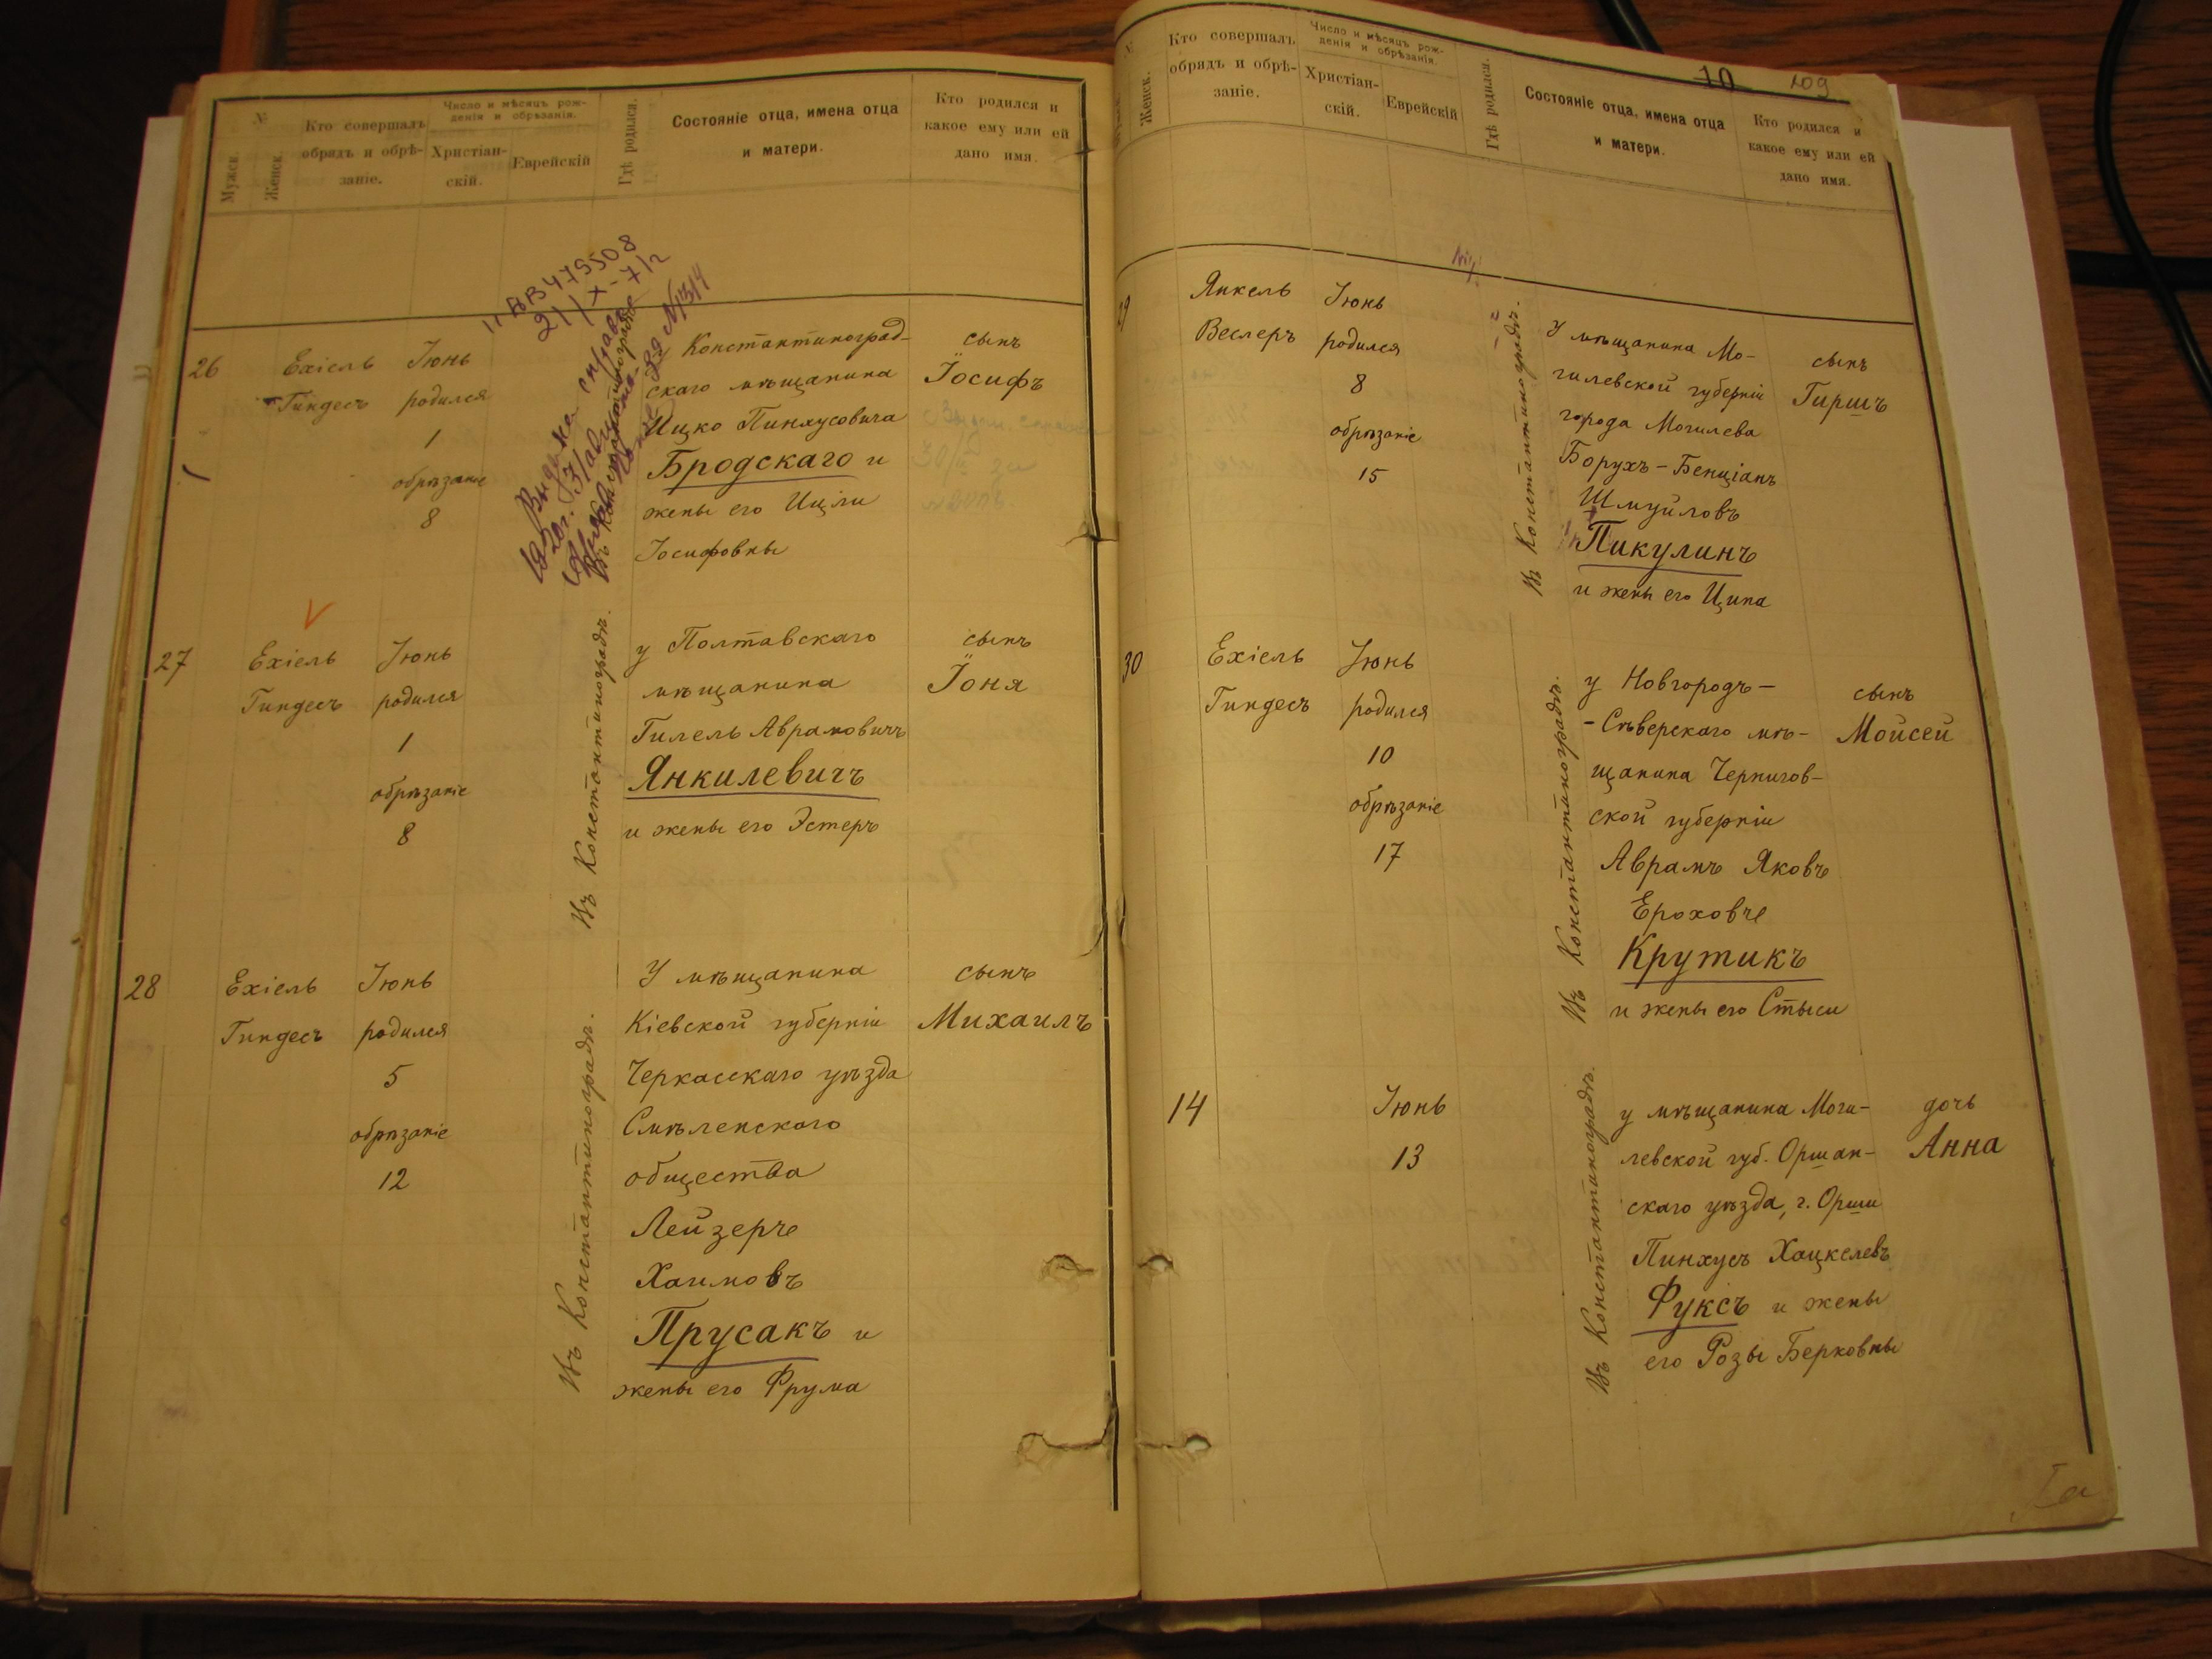 №
Мужск.
Женск.
Кто совершалъ
обрядъ и обрѣ-
заніе.
Число и мѣсяцъ рож-
денія и обрѣзанія.
Христіан-
скій.
Еврейскій
Гдѣ родился.
Состояніе отца, имена отца
и матери.
Кто родился и
какое ему или ей
дано имя.
26
Ехіель
Гиндесъ
Іюнь
родился
1
обрѣзаніе
8
Выдана справка
Константиноград-
скаго мѣщанина
Ицко Пинхусовича
Бродскаго и
жены его Ицли
Іосифовны
сынъ
Іосифъ
27
Ехіель
Гиндесъ
Іюнь
родился
1
обрѣзаніе
8
Въ Константиноградѣ.
у Полтавскаго
мѣщанина
Гилель Аврамовичъ
Янкилевичъ
и жены его Эстеръ
сынъ
Іоня
28
Ехіель
Гиндесъ
Іюнь
родился
5
обрѣзаніе
12
Въ Константиноградѣ.
У мѣщанина
Кіевской губерніи
Черкасскаго уѣзда
Смѣленского
общества
Лейзеръ
Хаимовъ
Прусакъ и
жены его Фрума
сынъ
Михаилъ
10 109
№
Женск.
Кто совершалъ
обрядъ и обрѣ-
заніе.
Число и мѣсяцъ рож-
денія и обрѣзанія.
Христіан-
скій.
Еврейскій
Гдѣ родился.
Состояніе отца, имена отца
и матери.
Кто родился и
какое ему или ей
дано имя.
29
Янкель
Веслеръ
Іюнь
родился
8
обрѣзаніе
15
Въ Константиноградѣ.
У мѣщанина Мо-
гилевской губерніи
города Могилева
Борухъ-Бенціанъ
Шмуйловъ
Пикулинъ
и жены его Ципа
сынъ
Гиршъ
30
Ехіель
Гиндесъ
Іюнь
родился
10
обрѣзаніе
17
Въ Константиноградѣ.
у Новгородъ-
-Сѣверскаго мѣ-
щанина Чернигов-
ской губерніи
Аврамъ Яковъ
Ероховъ
Крутикъ
и жены его Стыси
сынъ
Мойсей
14
Іюнь
13
Въ Константиноградѣ.
у мѣщанина Моги-
левской губ. Оршан-
скаго уѣзда, г. Орши
Пинхусъ Хацкелевъ
Фуксъ и жены
его Розы Берковны
дочь
Анна